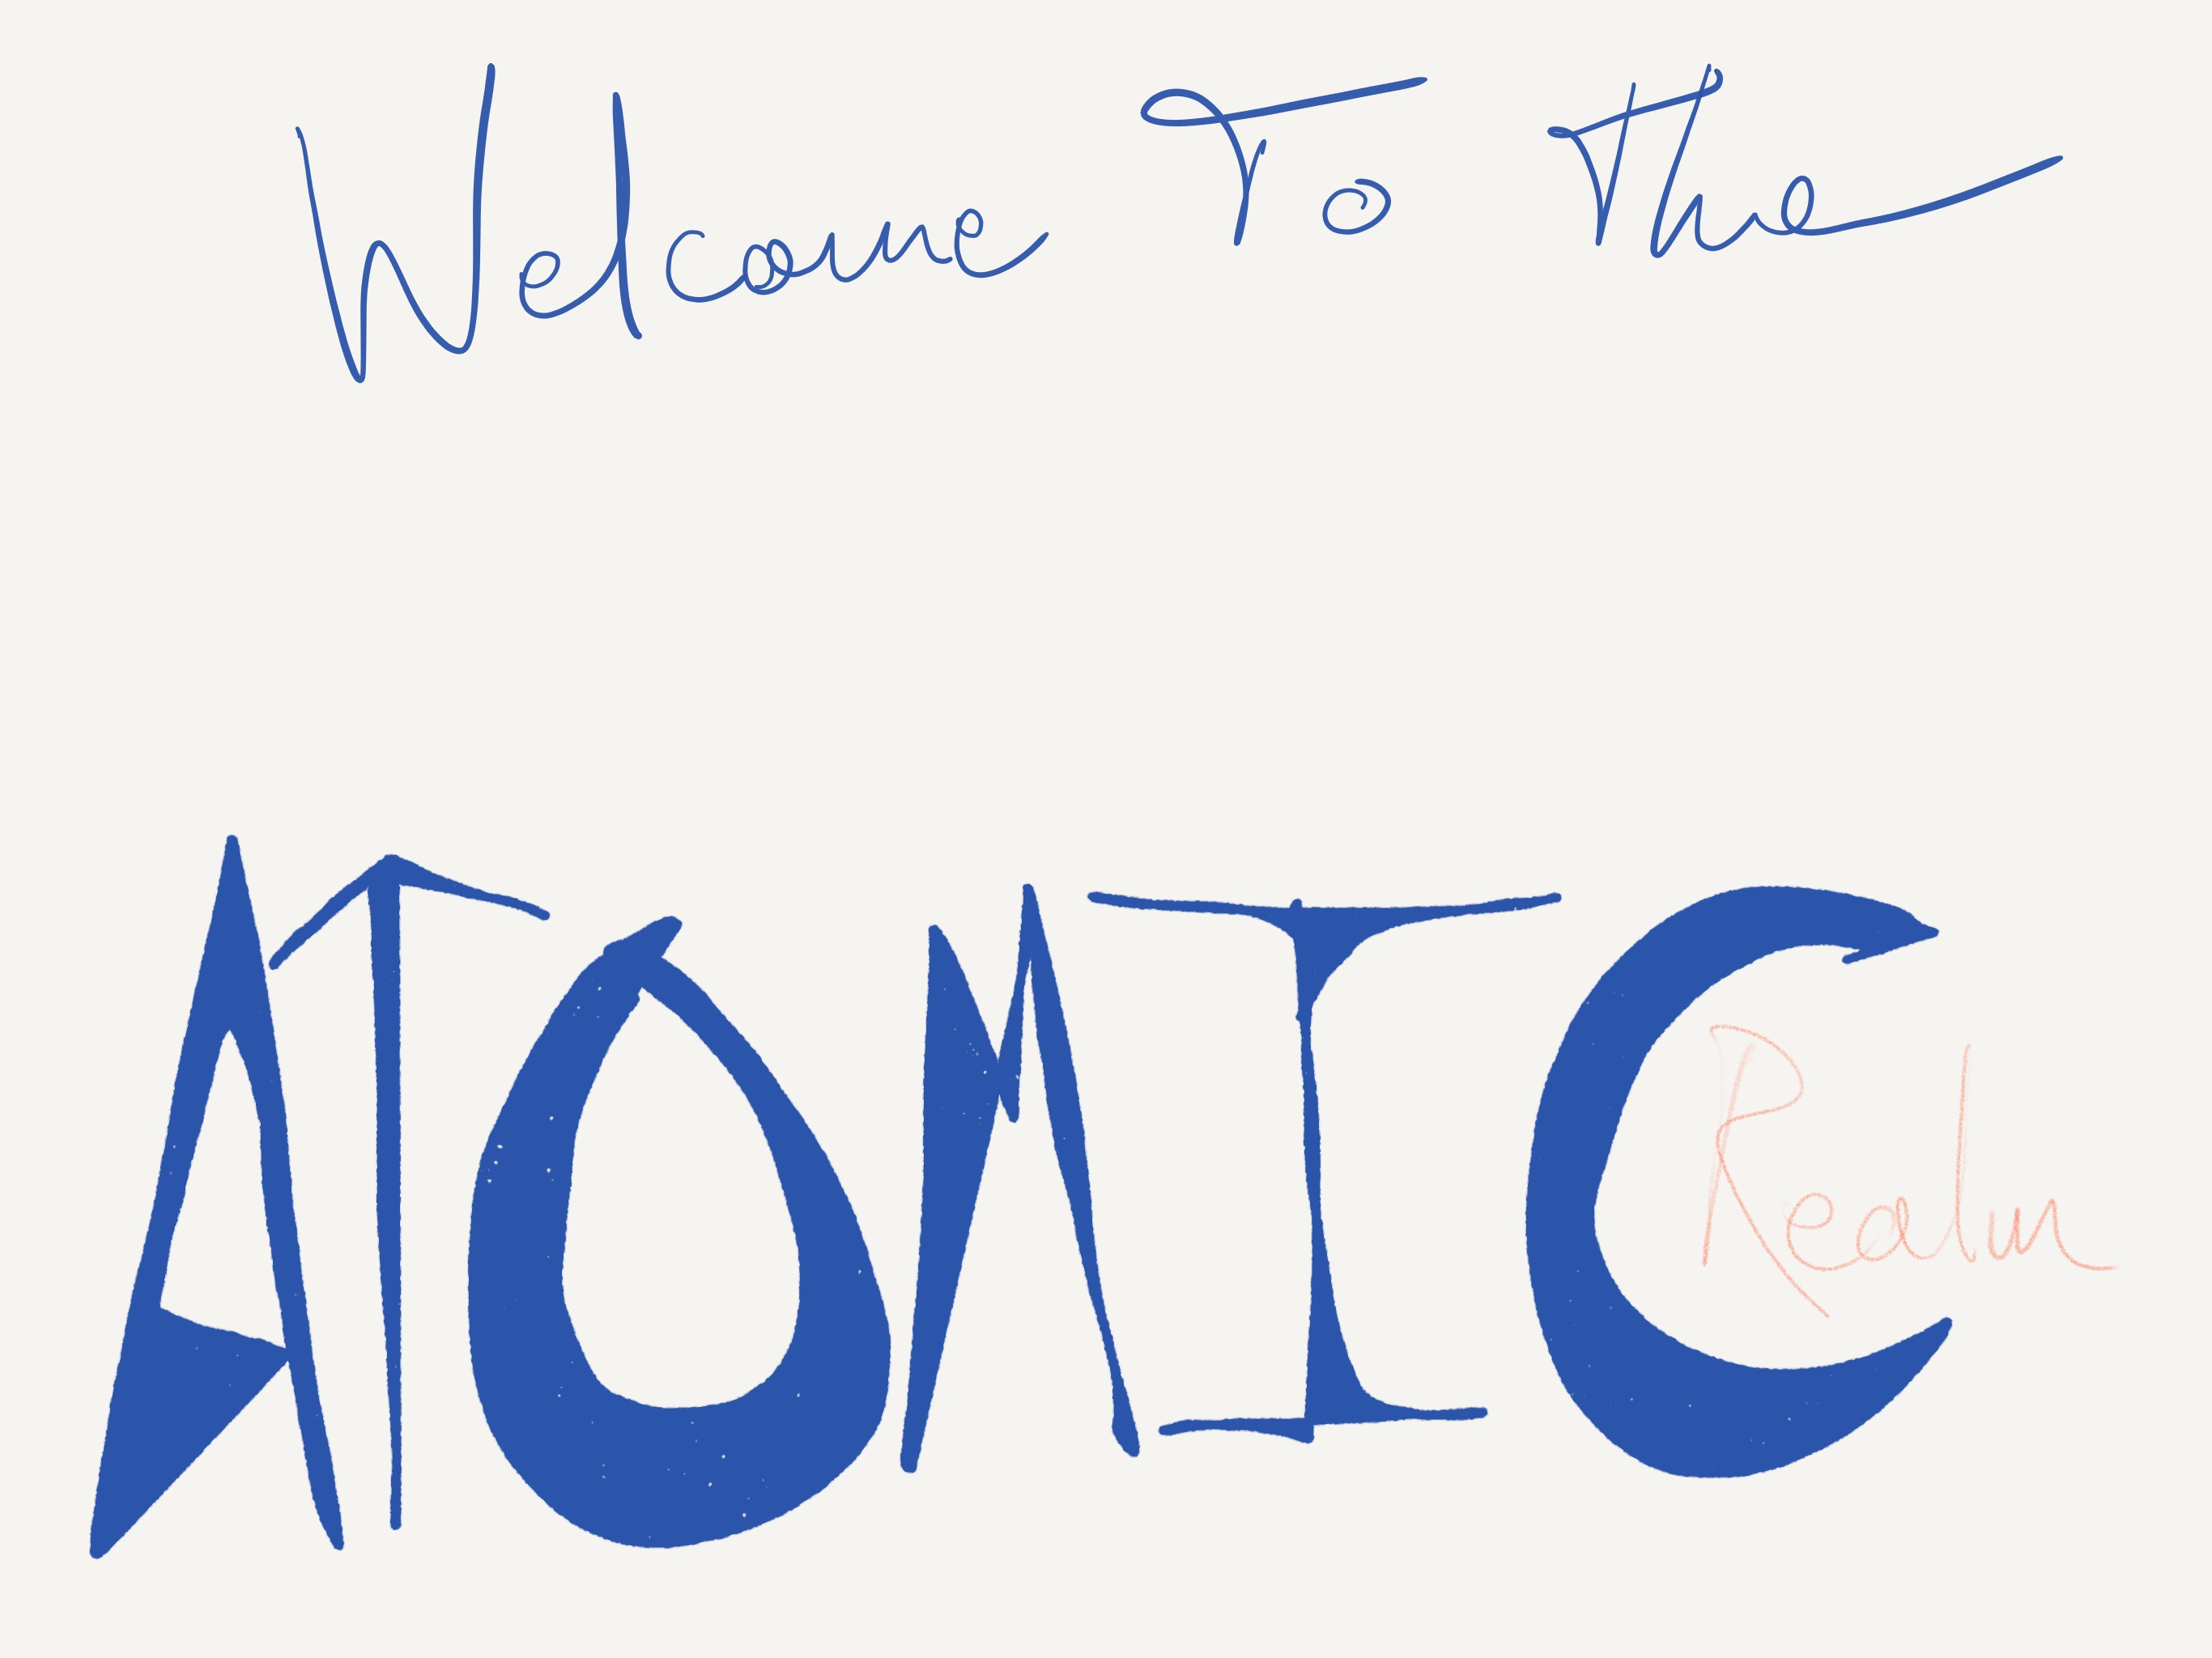 Welcome To The
ATOMIC
Realm